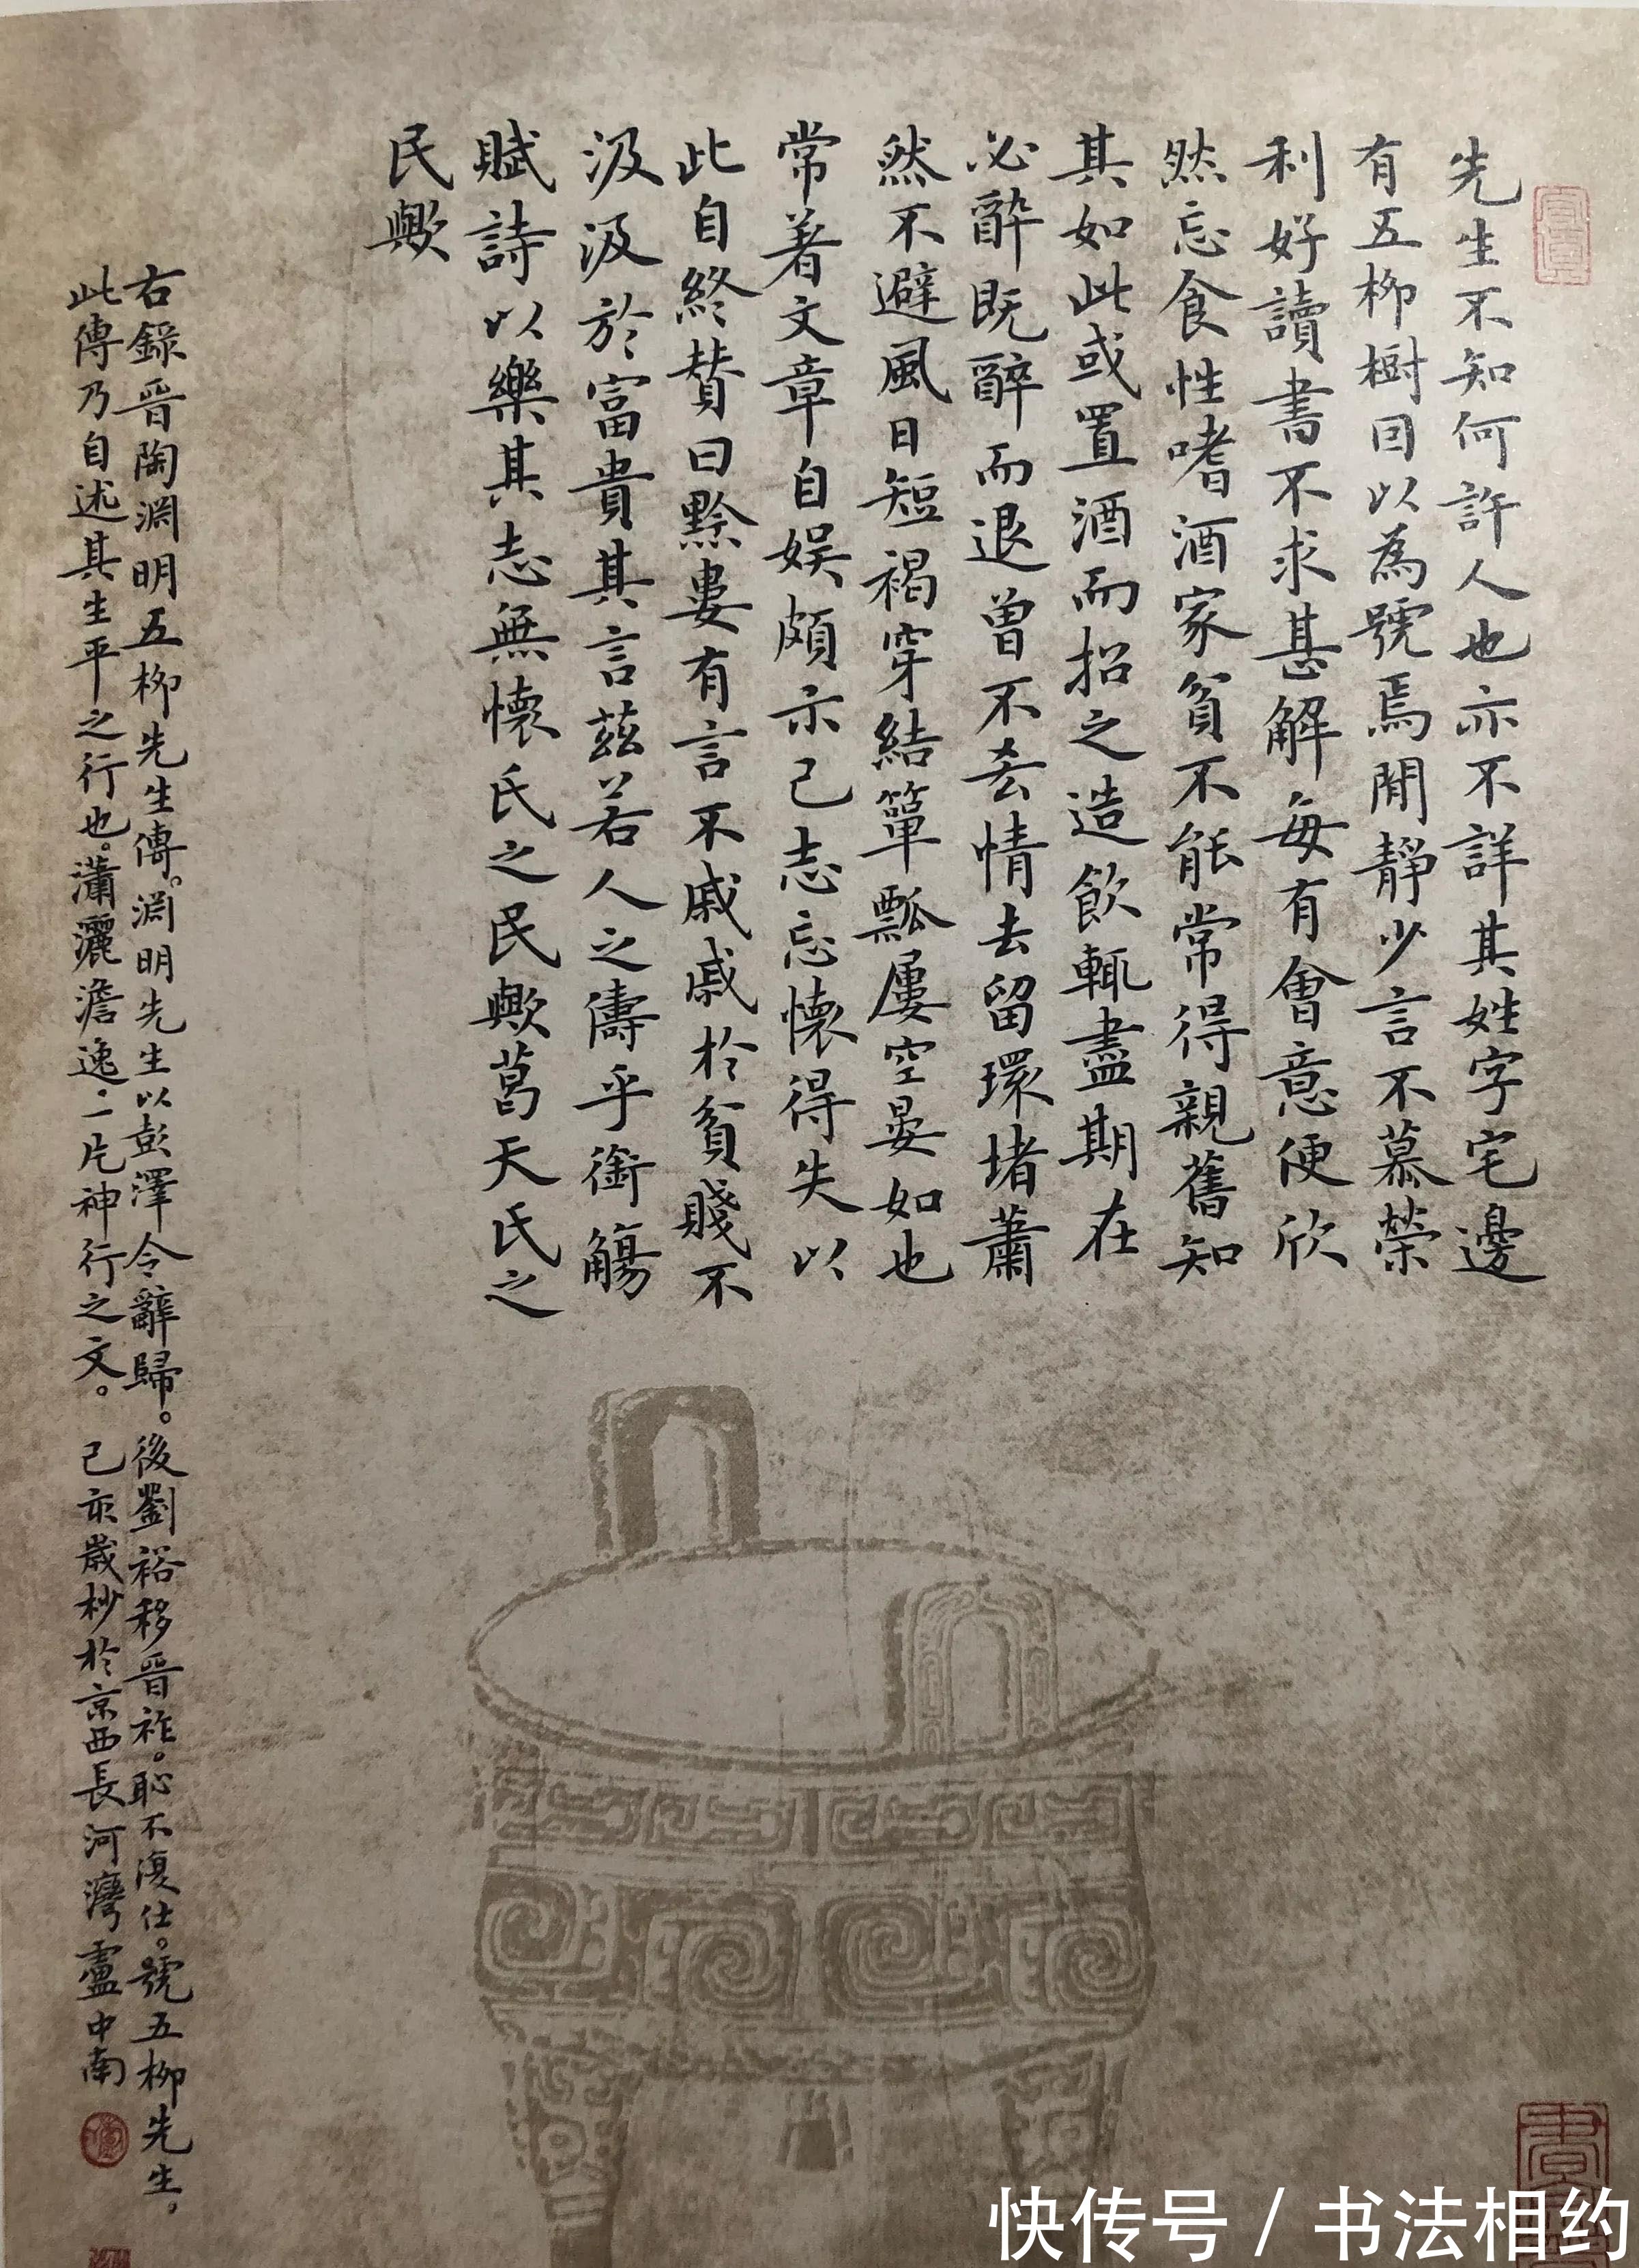 先生不知何許人也亦不詳其姓字宅邊
有五柳樹因以為號焉閒靜少言不慕榮
利好讀書不求甚解每有會意便欣
然忘食性嗜酒家貧不能常得親舊知
其如此或置酒而招之造飲輒盡期在
必醉既醉而退曾不吝情去留環堵蕭
然不避風日短褐穿結簞瓢屢空晏如也
常著文章自娛頗示己志忘懷得失以
此自終贊曰黔婁有言不戚戚於貧賤不
汲汲於富貴其言茲若人之儔乎銜觴
賦詩以樂其志無懷氏之民歟葛天氏之
民歟
右錄晉陶淵明五柳先生傳。淵明先生以彭澤令辭歸。後劉裕移晉祚。恥不復仕。號五柳先生，
此傳乃自述其生平之行也。瀟灑澹逸一片神行之文。己亥歲杪於京西長河灣盧中南
快传号 / 书法相约